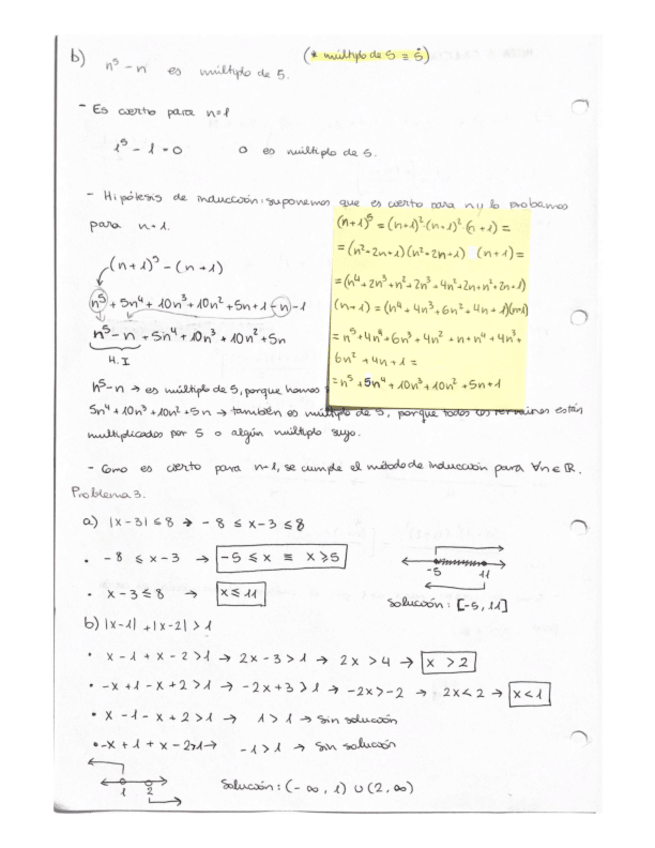 b) n⁵ - n es múltiplo de 5. (* múltiplo de 5 ≡ 5̇)
- Es cierto para n=1
1⁵ - 1 = 0 0 es múltiplo de 5.
- Hipótesis de inducción: suponemos que es cierto para n y lo probamos
para n+1.
(n+1)⁵ - (n+1)
n⁵ + 5n⁴ + 10n³ + 10n² + 5n + 1 - n - 1
n⁵ - n + 5n⁴ + 10n³ + 10n² + 5n
H.I
(n+1)⁵ = (n+1)²·(n+1)²·(n+1) =
= (n²+2n+1)(n²+2n+1) (n+1) =
= (n⁴+2n³+n²+2n³+4n²+2n+n²+2n+1)
(n+1) = (n⁴+4n³+6n²+4n+1)(n+1)
= n⁵+4n⁴+6n³+4n²+n+n⁴+4n³+
6n²+4n+1 =
= n⁵+5n⁴+10n³+10n²+5n+1
n⁵-n → es múltiplo de 5, porque hemos
5n⁴+10n³+10n²+5n → también es múltiplo de 5, porque todos los términos están
multiplicados por 5 o algún múltiplo suyo.
- Como es cierto para n=1, se cumple el método de inducción para ∀n∈ℝ.
Problema 3.
a) |x-3| ≤ 8 → -8 ≤ x-3 ≤ 8
· -8 ≤ x-3 → -5 ≤ x ≡ x ≥ 5
· x-3 ≤ 8 → x ≤ 11
-5 11
Solución: [-5, 11]
b) |x-1| + |x-2| > 1
· x-1+x-2>1 → 2x-3>1 → 2x>4 → x > 2
· -x+1-x+2>1 → -2x+3>1 → -2x>-2 → 2x<2 → x<1
· x-1-x+2>1 → 1>1 → Sin solución
· -x+1+x-2>1 → -1>1 → Sin solución
1 2
Solución: (-∞, 1) ∪ (2, ∞)